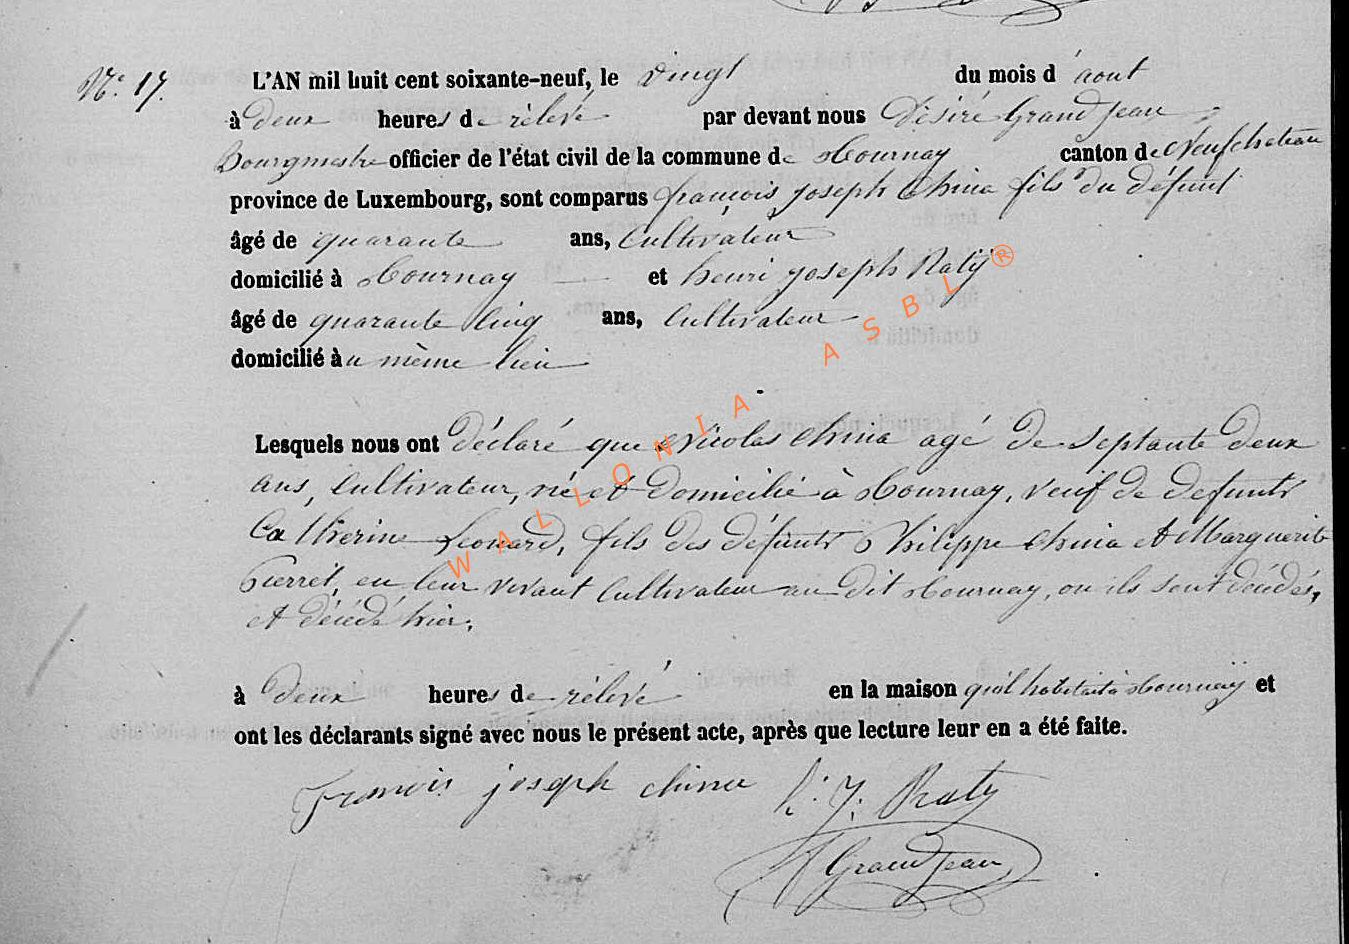 N.° 17.
L'AN mil huit cent soixante-neuf, le vingt du mois d'aout
à deux heures de rélevé par devant nous Désiré Grandjean
Bourgmestre officier de l'état civil de la commune de Tournay canton de Neufchateau
province de Luxembourg, sont comparus françois joseph China fils du défunt
âgé de quarante ans, Cultivateur
domicilié à Tournay et henri joseph Raty
âgé de quarante Cinq ans, Cultivateur
domicilié au mème lieu
Lesquels nous ont déclaré que Nicolas China agé de septante deux
ans, Cultivateur, né et domicilié à Tournay, veuf de defunte
Catherine Leonard, fils des défunts Philippe China et Marguerite
Pierret, en leur vivant Cultivateur au dit Tournay, ou ils sont décédés,
et décédé hier,
à deux heures de rélevé en la maison qu'il habitait à Tournay et
ont les déclarants signé avec nous le présent acte, après que lecture leur en a été faite.
Francois joseph china h. J. Raty
Grandjean
WALLONIA ASBL ®